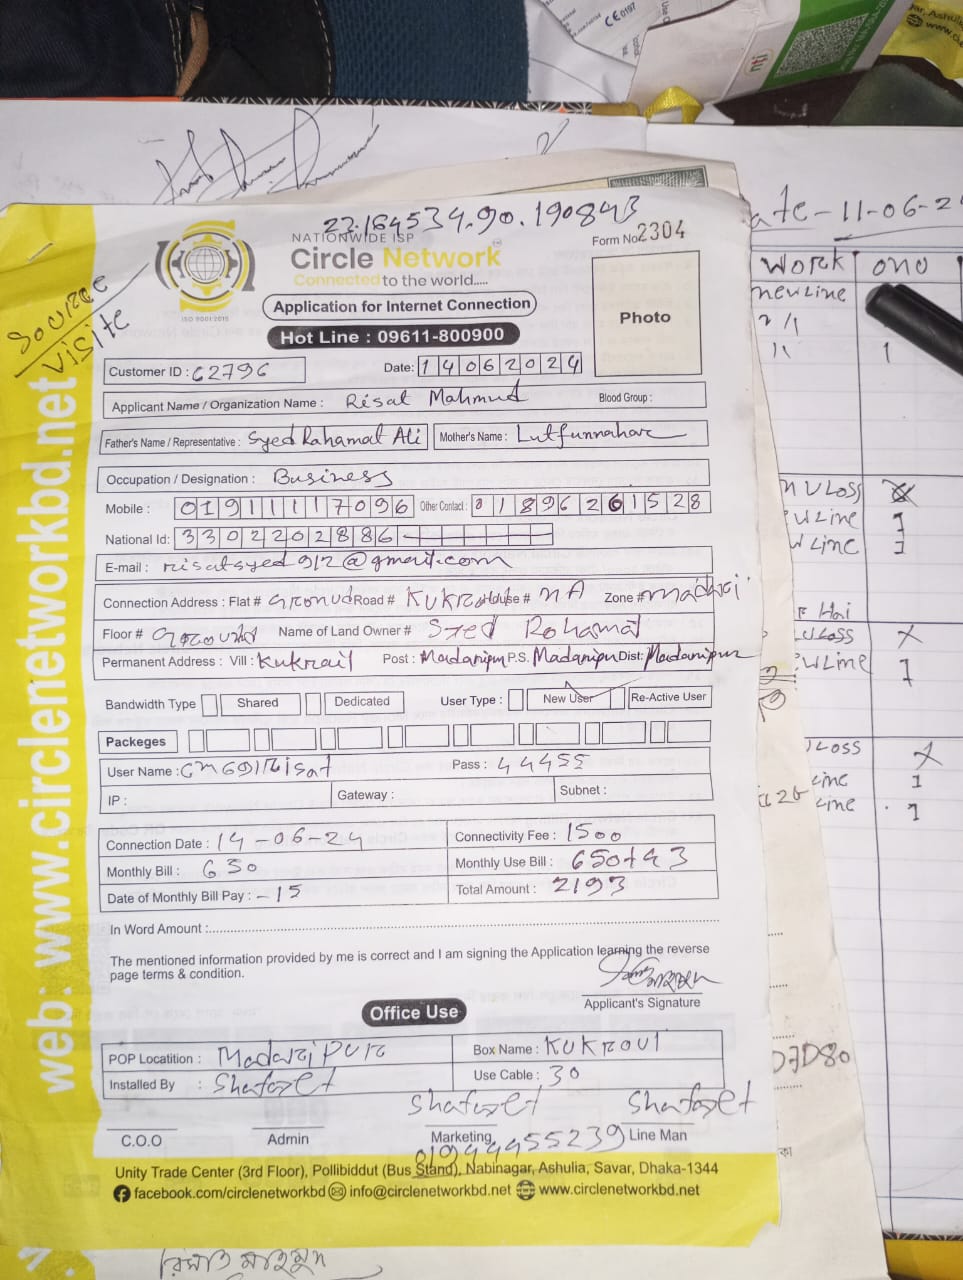 23.164534.90.190843
NATIONWIDE ISP
Circle Network
Connected to the world.....
Form No 2304
ISO 9001:2015
Application for Internet Connection
Hot Line : 09611-800900
Photo
Source
Visite
web: www.circlenetworkbd.net
Customer ID : 62796
Date: 14062024
Applicant Name / Organization Name : Risat Mahmud Blood Group :
Father's Name / Representative : Syed Rahamat Ali Mother's Name : Lutfunnahar
Occupation / Designation : Business
Mobile : 01911117096 Other Contact : 01896261528
National Id: 3302202886
E-mail : risatsyed912@gmail.com
Connection Address : Flat # Road # House # NA Zone #
Floor # Name of Land Owner # Syed Rohamat
Permanent Address : Vill : Kukrail Post : Madaripur P.S. Madaripur Dist: Madaripur
Bandwidth Type Shared Dedicated User Type : New User Re-Active User
Packeges
User Name : Pass : 44455
IP : Gateway : Subnet :
Connection Date : 14-06-24 Connectivity Fee : 1500
Monthly Bill : 650 Monthly Use Bill : 650+43
Date of Monthly Bill Pay : -15 Total Amount : 2193
In Word Amount :
The mentioned information provided by me is correct and I am signing the Application learning the reverse
page terms & condition.
Applicant's Signature
Office Use
POP Locatition : Madaripur Box Name : Kukrail
Installed By : Shafayet Use Cable : 30
Shafayet Shafayet
C.O.O Admin Marketing Line Man
01944455239
Unity Trade Center (3rd Floor), Pollibiddut (Bus Stand), Nabinagar, Ashulia, Savar, Dhaka-1344
facebook.com/circlenetworkbd info@circlenetworkbd.net www.circlenetworkbd.net
রিসাত মাহমুদ
ate-11-06-2
WORK ONU
newline
11 1
Loss
Line 1
Line 1
Loss x
Line 1
Loss x
Line 1
Line 1